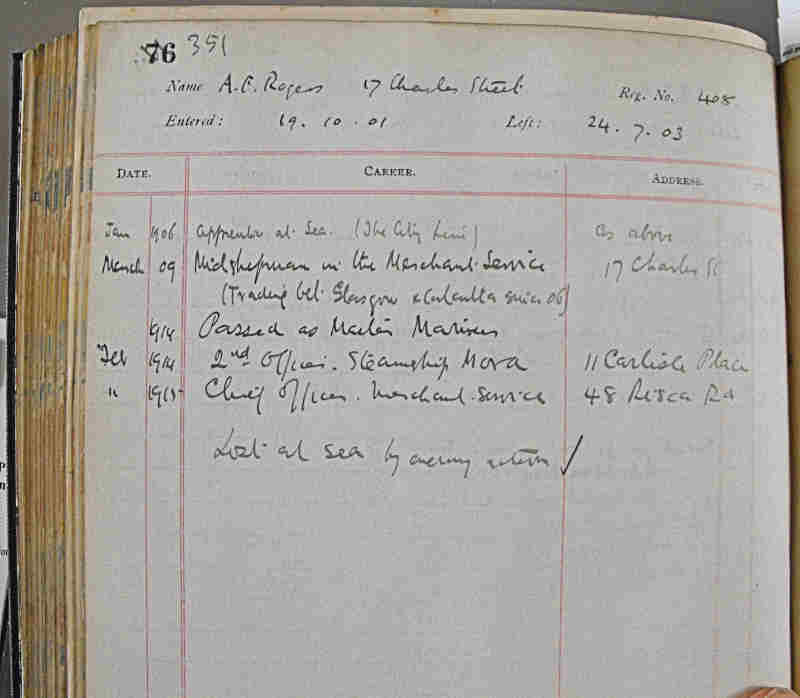 76 351
Name A. C. Rogers 17 Charles Street Reg. No. 408
Entered: 19. 10. 01 Left: 24. 7. 03
DATE. CAREER. ADDRESS.
Jan 1906 Apprentice at Sea. (The City Line) as above
March 09 Midshipman in the Merchant Service 17 Charles St
(Trading bet. Glasgow & Calcutta since 06)
1914 Passed as Master Mariner
Feb 1914 2nd Officer. Steamship Mora 11 Carlisle Place
" 1915 Chief Officer. Merchant Service 48 Risca Rd
Lost at sea by enemy action ✓